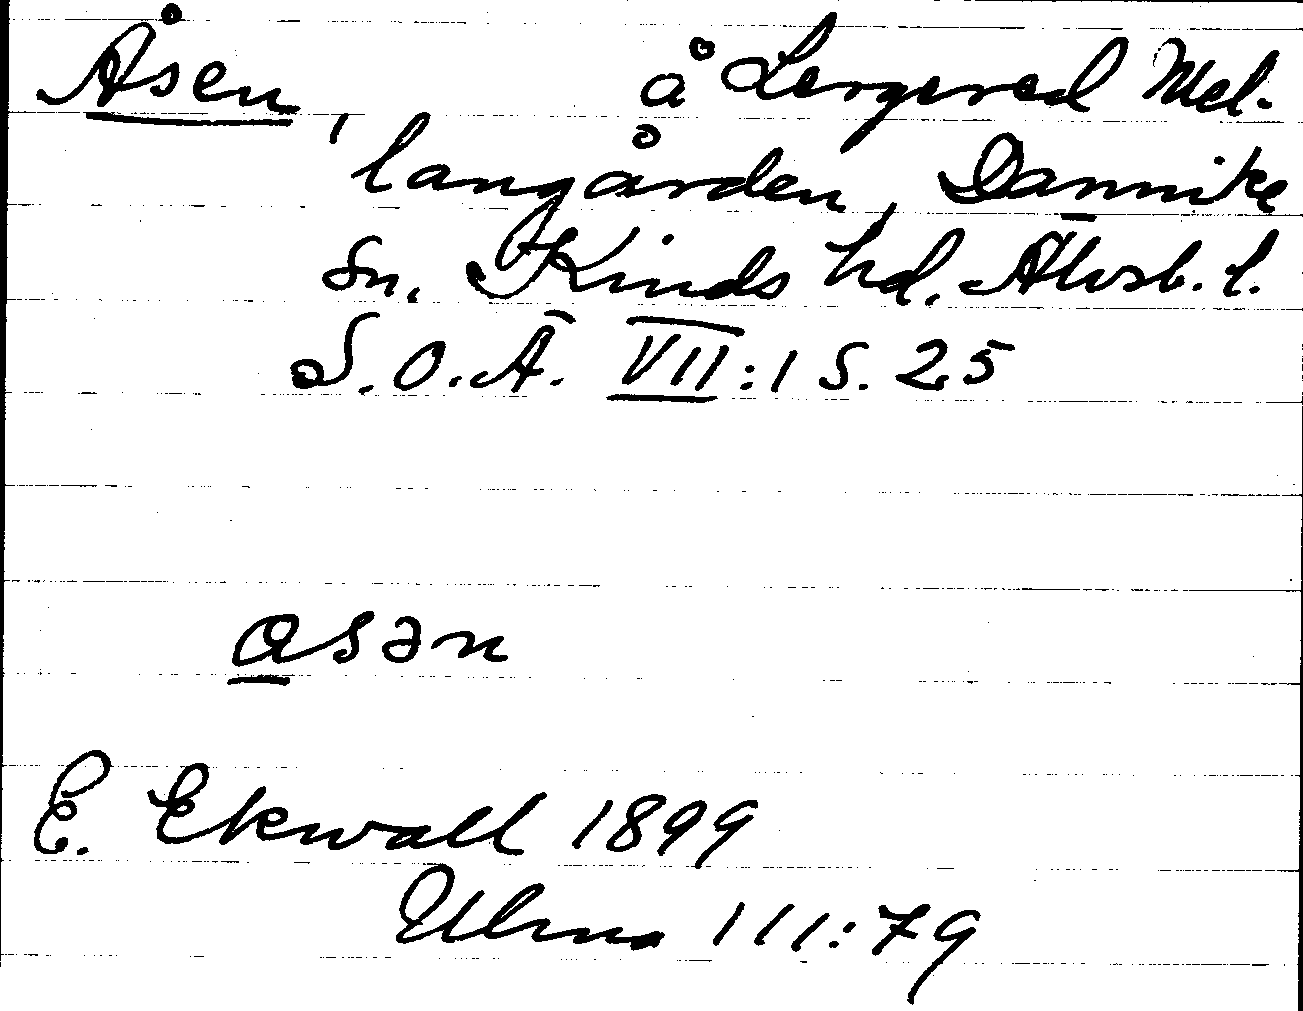 Åsen, å Lergered Mel-
langården, Dannike
sn. Kinds hd. Älvsb. l.
S.O.Ä. VII:1 S. 25
asən
E. Ekwall 1899
Ulma 111:79